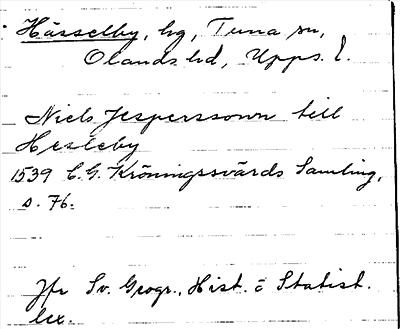 Hässelby, hg, Tuna sn,
Olands hd, Upps. l.
Niels Jesperssonn till
Hesleby
1539 C. G. Kröningssvärds Samling,
s. 76.
Jfr Sv. Geogr., Hist. o Statist.
lex.